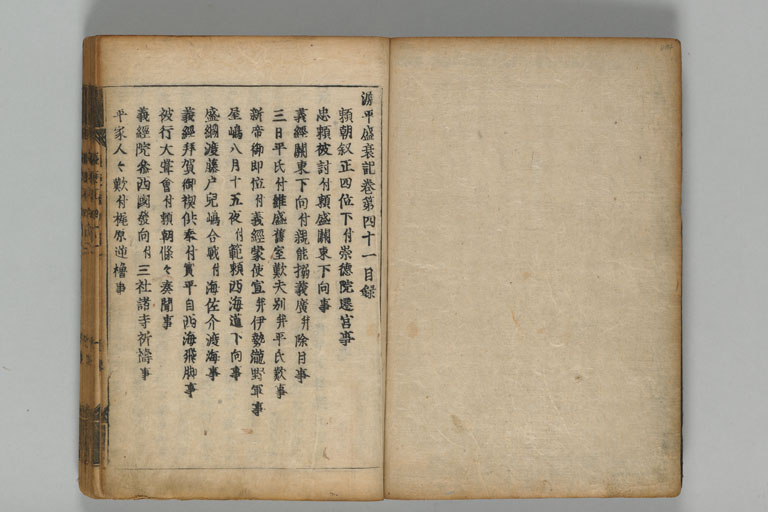 源平盛衰記巻第四十一目録
頼朝叙正四位下付崇徳院遷宮事
忠頼被討付頼盛關東下向事
義經關東下向付親能搦義廣并除目事
三日平氏付維盛舊室歎夫別并平氏歎事
新帝御即位付義經蒙使宣并伊勢瀧野軍事
屋嶋八月十五夜付範頼西海道下向事
盛綱渡藤戸兒嶋合戦付海佐介渡海事
義經拝賀御禊供奉付實平自西海飛脚事
被行大嘗會付頼朝條々奏聞事
義經院参西國發向付三社諸寺祈祷事
平家人々歎付梶原逆櫓事